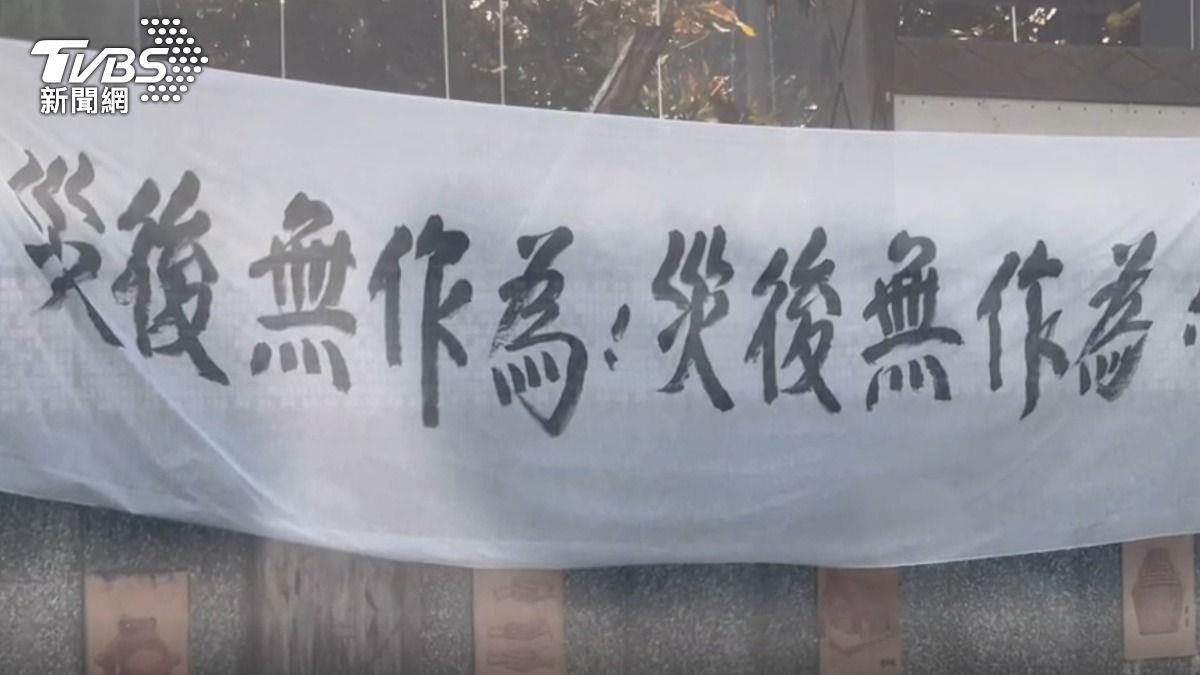 TVBS
新聞網
災後無作為;災後無作為